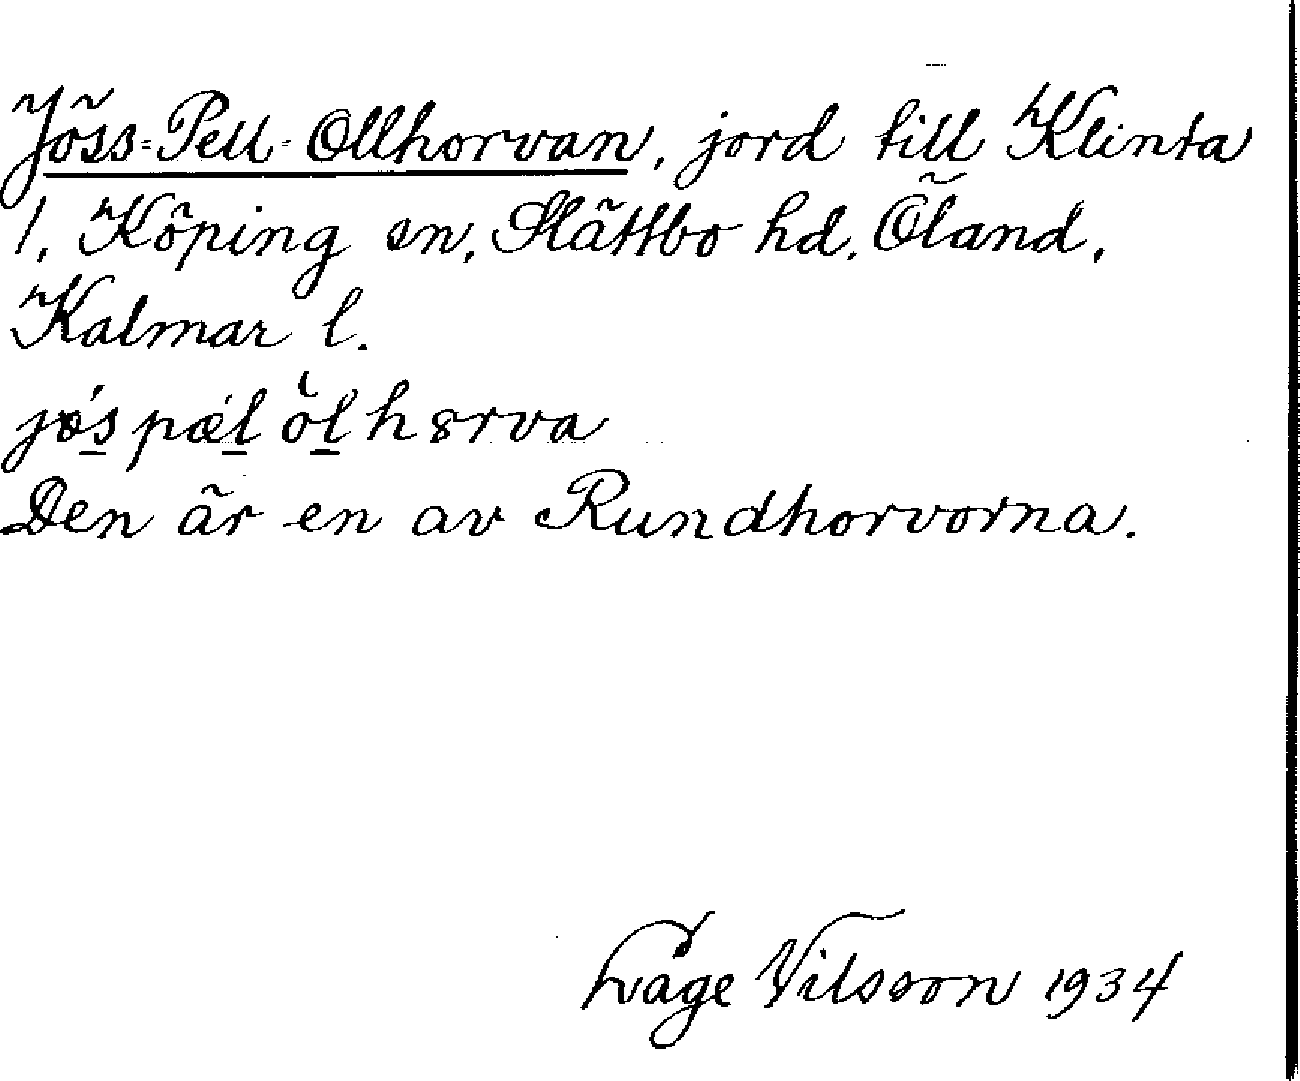 Jöss-Pell-Ollhorvan, jord till Klinta
1, Köping sn, Slättbo hd, Öland,
Kalmar l.
jǿs pǽl ŏl hȣrva
Den är en av Rundhorvorna.
Nilsson 1934